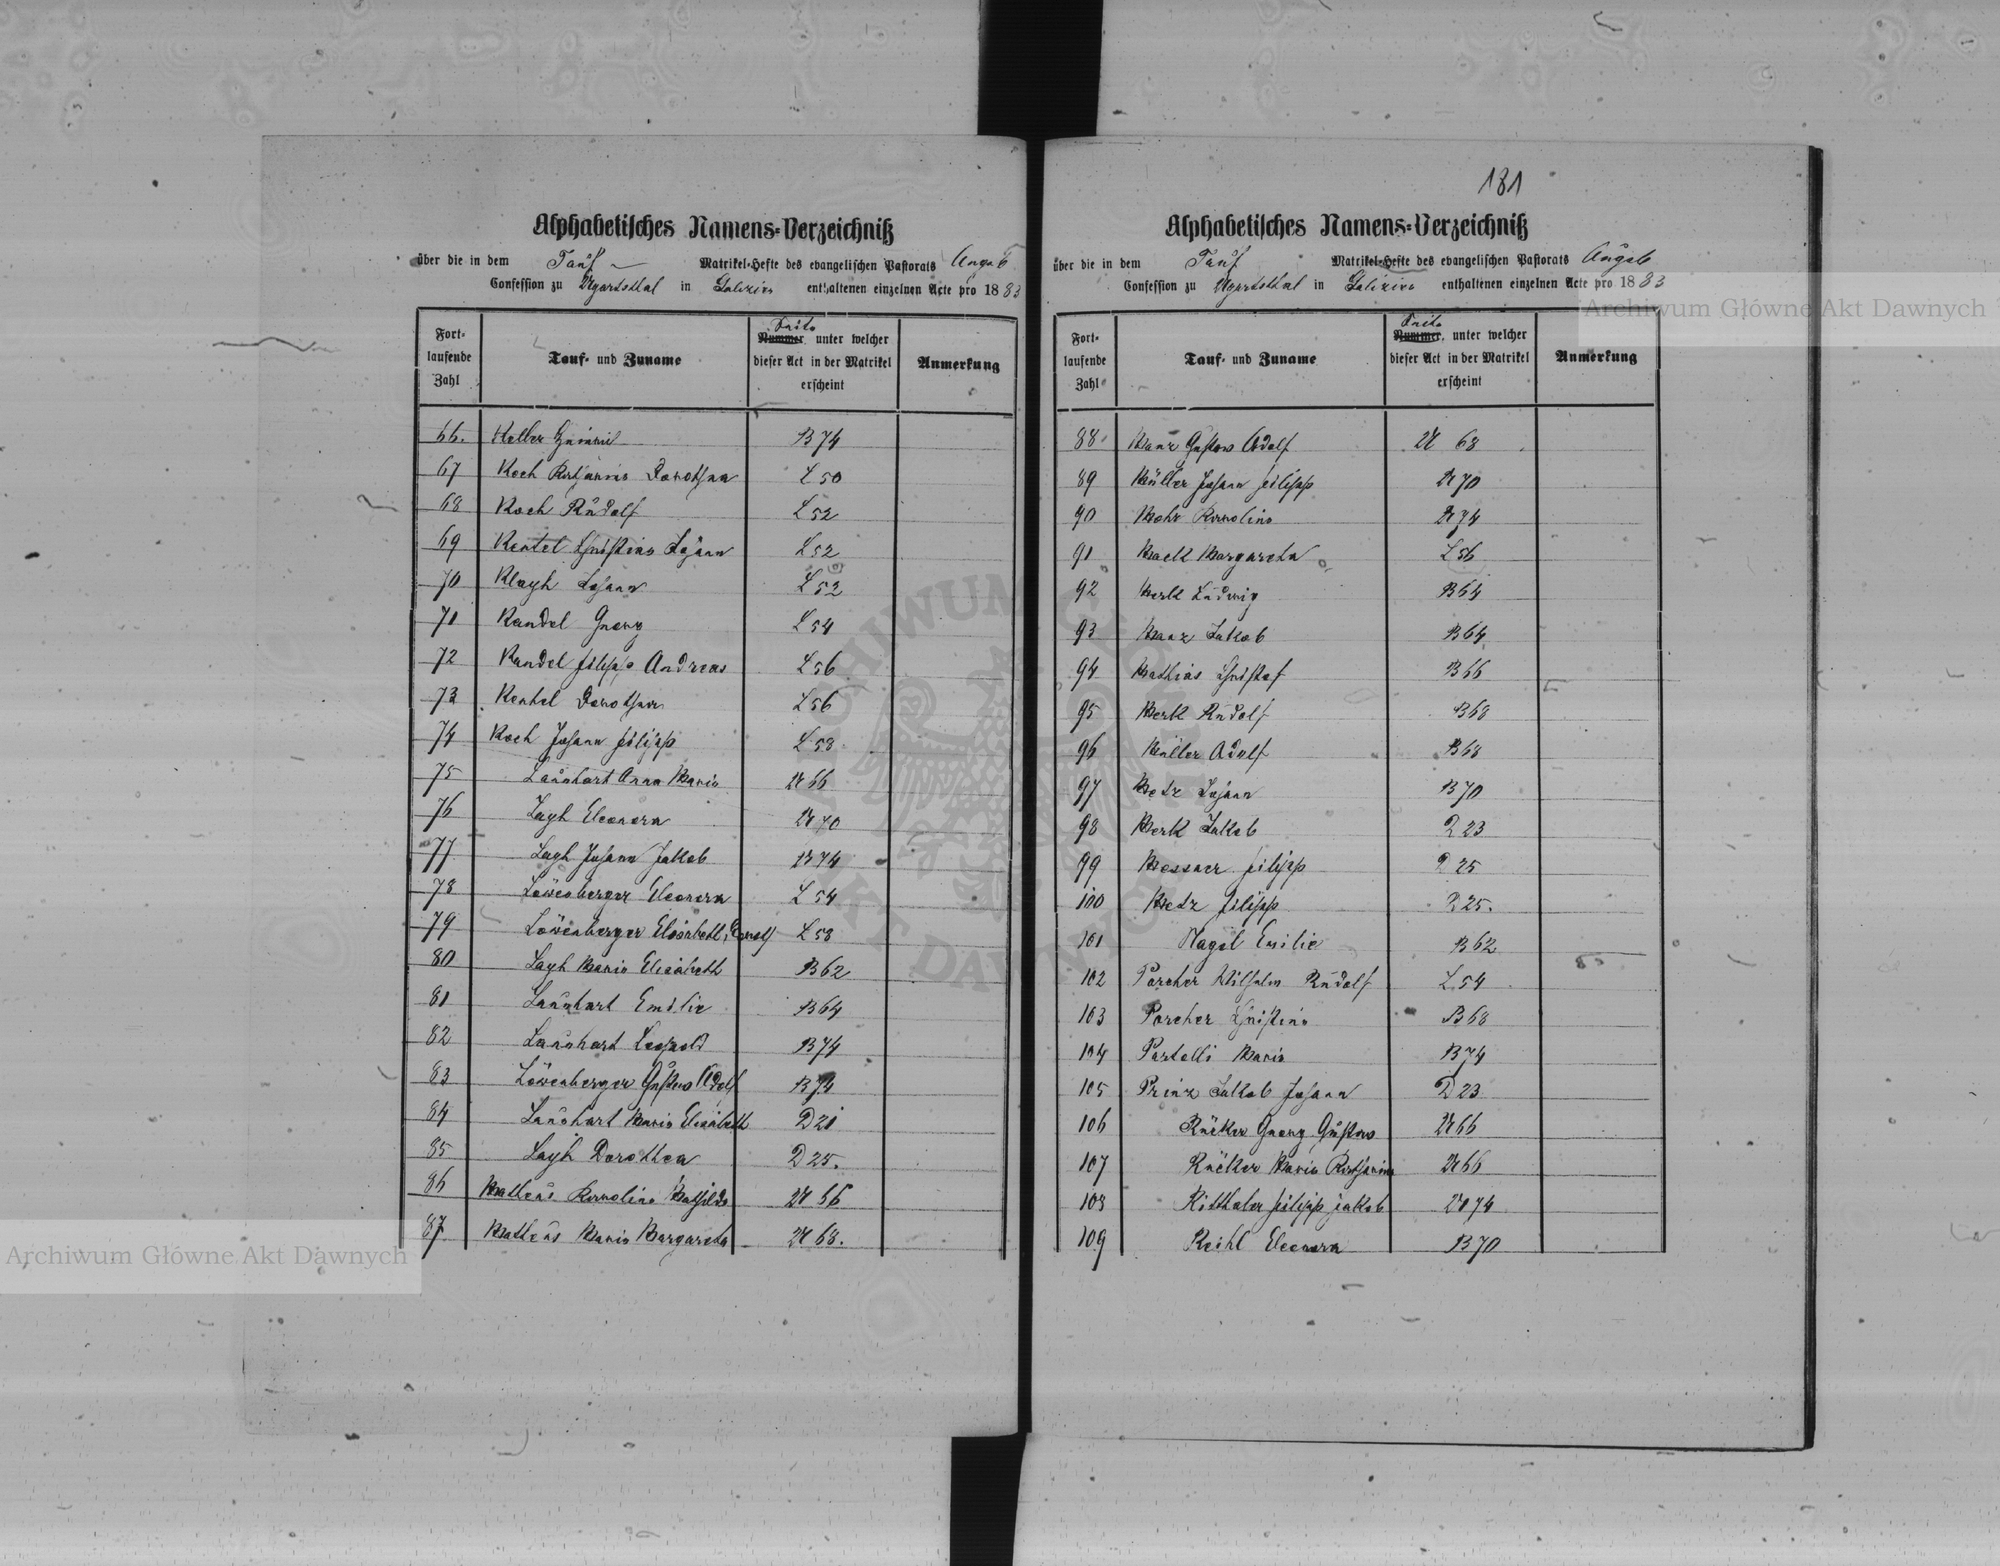 Alphabetisches Namens-Verzeichniß
über die in dem Tauf Matrikel-Hefte des evangelischen Pastorats Augsb
Confession zu Ugartsthal in Galizien enthaltenen einzelnen Acte pro 1883
Fort-laufende Zahl
Tauf- und Zuname
Seite
Nummer, unter welcher dieser Act in der Matrikel erscheint
Anmerkung
66. Kelber Heinrich B 74
67 Koch Katharina Dorothea L 50
68 Koch Rudolf L 52
69 Kentel Christina L 52
70 Klayh Johann L 52
71 Kandel Georg L 54
72 Kandel Filipp Andreas L 56
73 Kentel Dorothea L 56
74 Koch Johann Filipp L 58
75 Lanhart Anna Maria U 66
76 Layh Eleonora U 70
77 Layh Johann Jakob B 74
78 Löwenberger Eleonora L 54
79 Löwenberger Elisabeth L 58
80 Layh Maria Elisabeth B 62
81 Lanhart Emilie B 64
82 Lanhart Leopold B 74
83 Löwenberger Gustav Adolf B 74
84 Lanhart Maria Elisabeth D 21
85 Layh Dorothea D 25.
86 Matheus Karolina Mathilde U 56
87. Matheus Maria Margareta U 68.
181
Alphabetisches Namens-Verzeichniß
über die in dem Tauf Matrikel-Hefte des evangelischen Pastorats Augsb
Confession zu Ugartsthal in Galizien enthaltenen einzelnen Acte pro 1883
Fort-laufende Zahl
Tauf- und Zuname
Seite
Nummer, unter welcher dieser Act in der Matrikel erscheint
Anmerkung
88. Manz Gustav Adolf U 68
89 Müller Johann Filipp U 70
90 Mohr Karolina U 74
91 Mack Margareta L 56
92 Merk Ludwig B 64
93 Manz Jakob B 64
94 Mathias Christof B 66
95 Merk Rudolf B 68
96 Müller Adolf B 68
97 Metz Johann B 70
98 Merk Jakob D 23
99 Messner Filipp D 25
100 Metz Filipp D 25.
101 Nagel Emilie B 62
102 Porcher Wilhelm Rudolf L 54
103 Porcher Christina B 68
104 Partelli Maria B 74
105 Prinz Jakob Johann D 23
106 Rücker Georg Gustav U 66
107 Rücker Maria Katharina U 66
108 Ritthaler Filipp Jakob U 74
109 Reihl Eleonora B 70
Archiwum Główne Akt Dawnych
Archiwum Główne Akt Dawnych
ARCHIWUM GŁÓWNE AKT DAWNYCH